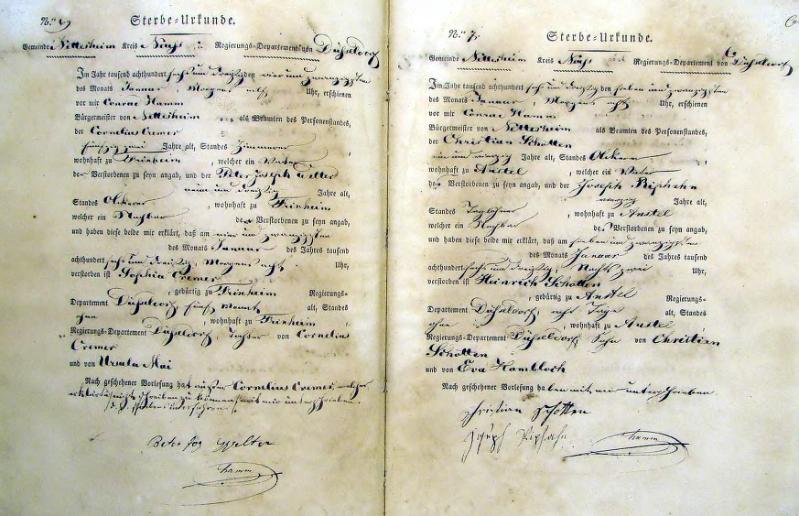 N.ro 6 Sterbe-Urkunde.
Gemeinde Nettesheim Kreis Neuß Regierungs-Departement von Düsseldorf
Im Jahr tausend achthundert sechs und dreyßig den vier und zwanzigsten
des Monats Januar, Morgens elf Uhr, erschienen
vor mir Conrad Hamm
Bürgermeister von Nettesheim als Beamten des Personenstandes,
der Cornelius Cremer
fünfzig zwei Jahre alt, Standes
wohnhaft zu Frixheim, welcher ein Vater
der Verstorbenen zu seyn angab, und der Peter Joseph Welter
neun und dreißig Jahre alt,
Standes Ackerer, wohnhaft zu Frixheim
welcher ein Nachbar der Verstorbenen zu seyn angab,
und haben diese beide mir erklärt, daß am vier und zwanzigsten
des Monats Januar des Jahres tausend
achthundert sechs und dreißig, Morgens acht Uhr,
verstorben ist Sophia Cremer
, gebürtig zu Frixheim Regierungs-
Departement Düsseldorf fünf Monath alt, Standes
ohne, wohnhaft zu Frixheim
Regierungs-Departement Düsseldorf, Tochter von Cornelius
Cremer
und von Ursula Mai
Nach geschehener Vorlesung hat außer Cornelius Cremer, welcher
erklärte nicht schreiben zu können, mit mir unterschrieben
Peter Jos Welter
Hamm
N.ro 7. Sterbe-Urkunde. 6
Gemeinde Nettesheim Kreis Neuß Regierungs-Departement von Düsseldorf
Im Jahr tausend achthundert sechs und dreyßig den sieben und zwanzigsten
des Monats Januar, Morgens acht Uhr, erschienen
vor mir Conrad Hamm
Bürgermeister von Nettesheim als Beamten des Personenstandes,
der Christian Schotten
ein und vierzig Jahre alt, Standes Ackerer
wohnhaft zu Anstel, welcher ein Vater
des Verstorbenen zu seyn angab, und der Joseph Piphahn
vierzig Jahre alt,
Standes Taglöhner, wohnhaft zu Anstel
welcher ein Nachbar des Verstorbenen zu seyn angab,
und haben diese beide mir erklärt, daß am sieben und zwanzigsten
des Monats Januar des Jahres tausend
achthundert sechs und dreißig, Nachts zwei Uhr,
verstorben ist Heinrich Schotten
, gebürtig zu Anstel Regierungs-
Departement Düsseldorf acht Tage alt, Standes
ohne, wohnhaft zu Anstel
Regierungs-Departement Düsseldorf Sohn von Christian
Schotten
und von Eva Hambloch
Nach geschehener Vorlesung haben mit mir unterschrieben.
Christian Schotten
Joseph Piphahn
Hamm